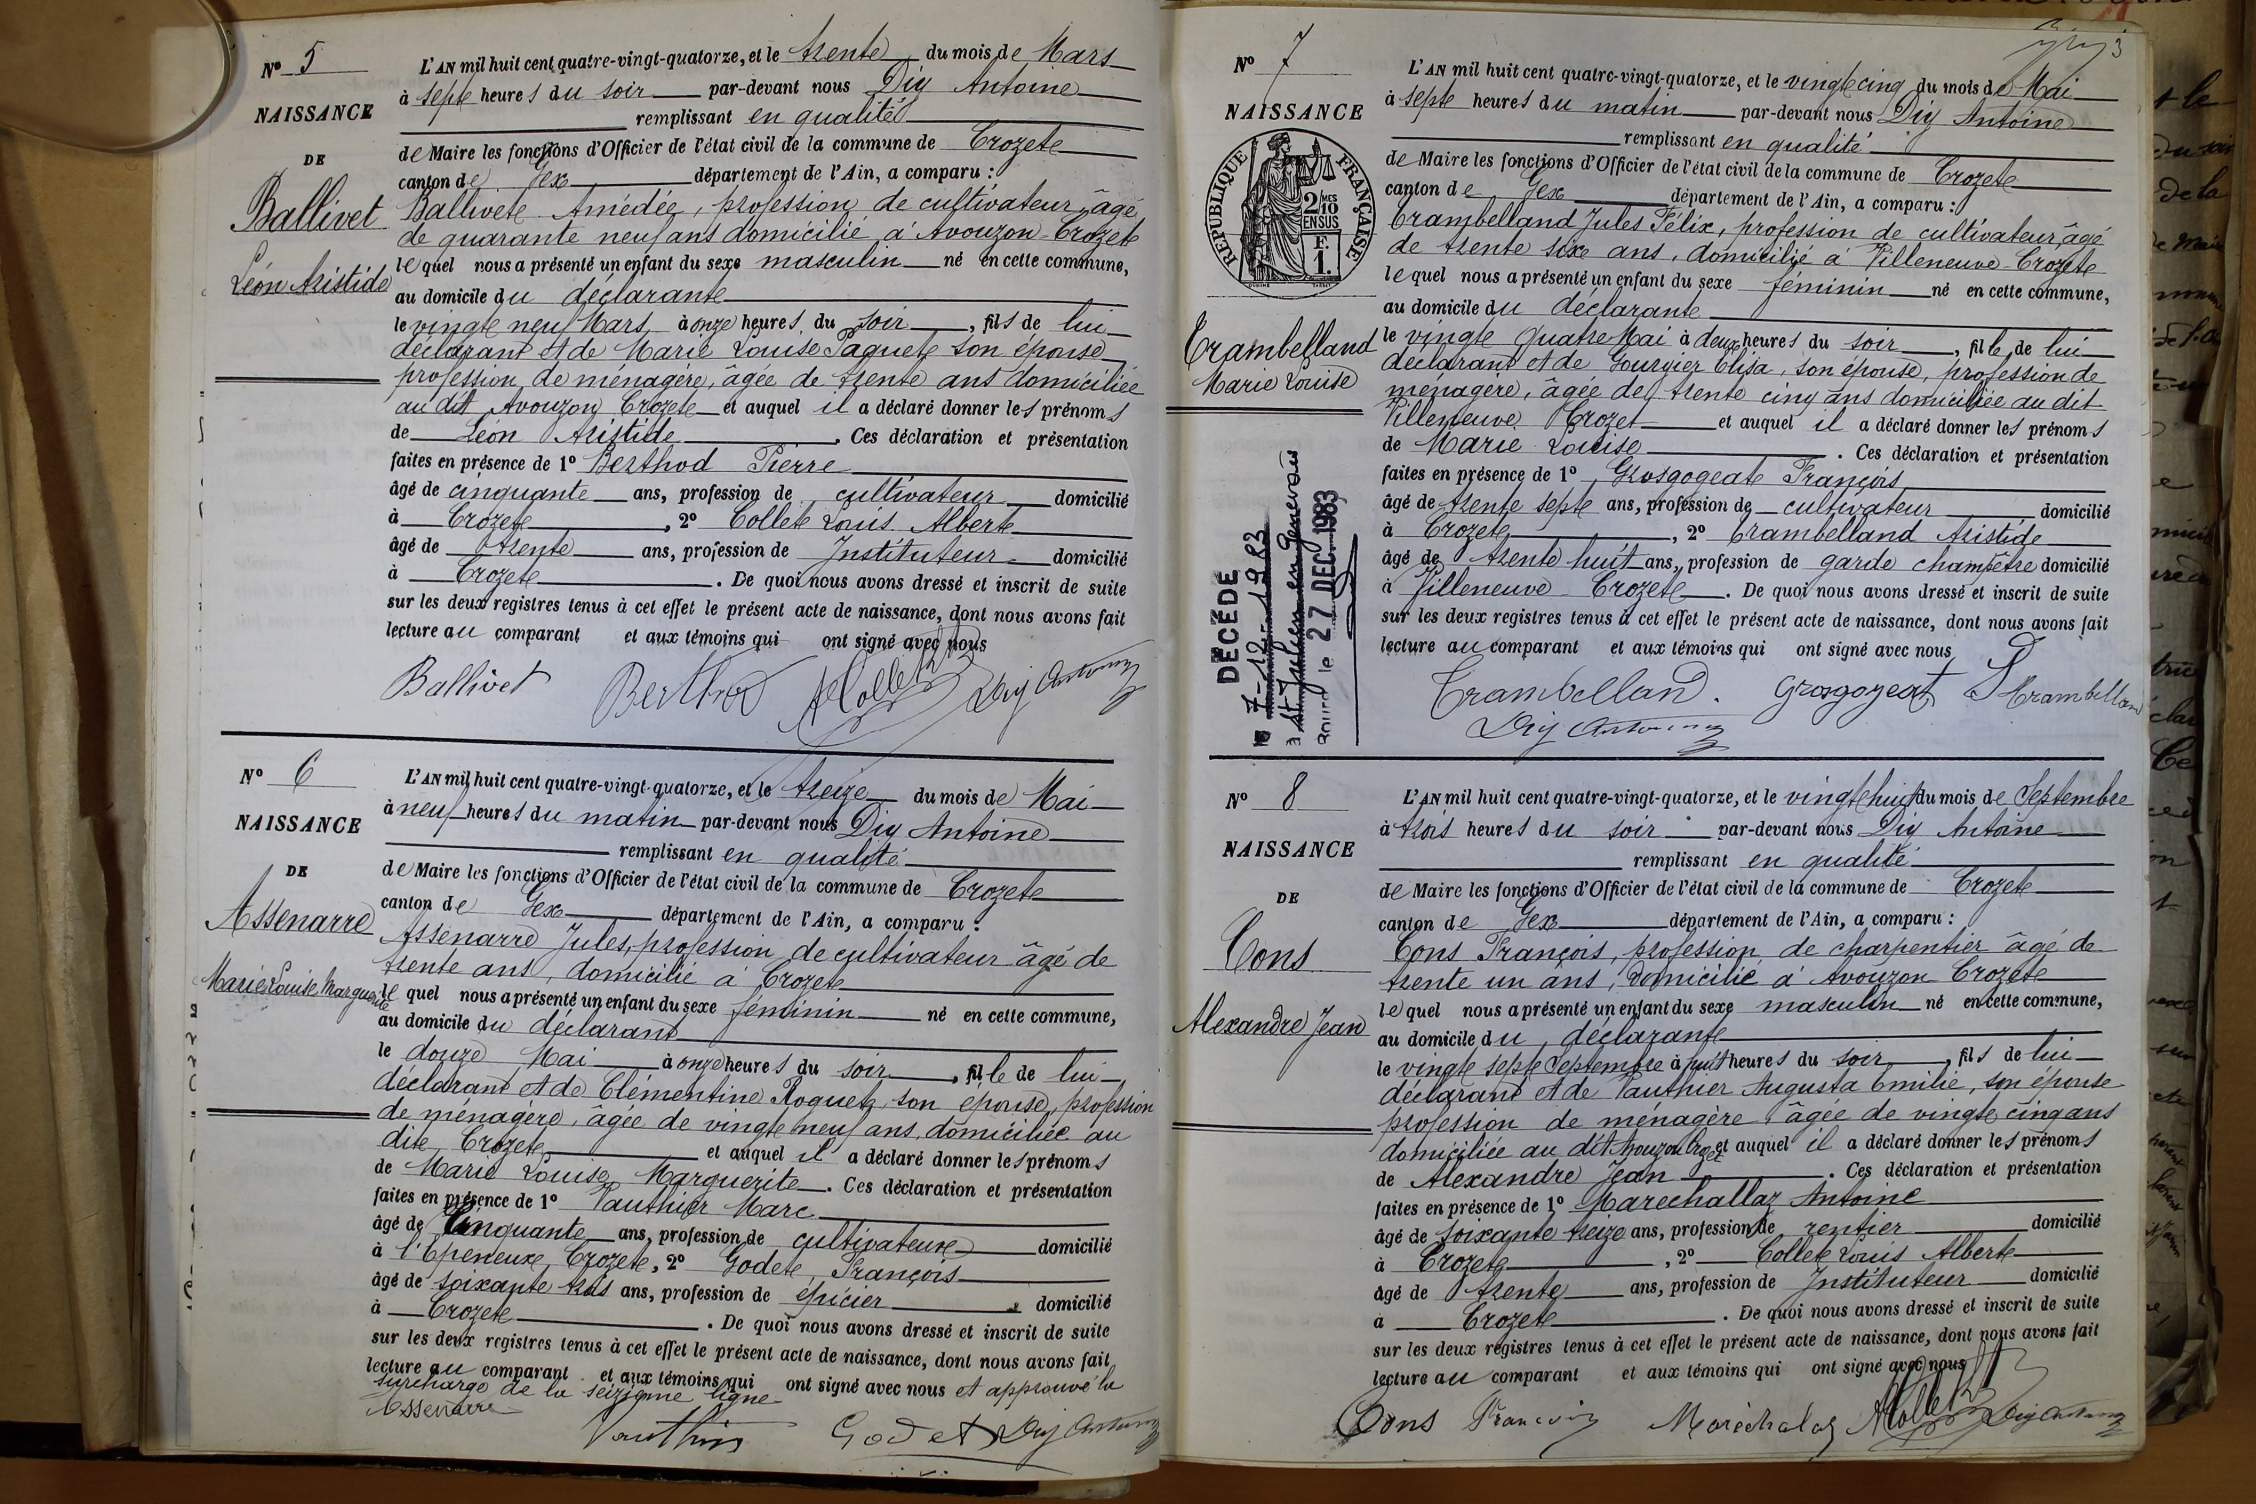 N° 5
NAISSANCE
DE
Ballivet
Léon Aristide
L'AN mil huit cent quatre-vingt-quatorze, et le trente du mois de Mars
à sept heures du soir par-devant nous Diy Antoine
remplissant en qualité
de Maire les fonctions d'Officier de l'état civil de la commune de Crozet
canton de Gex département de l'Ain, a comparu :
Ballivet Amédée, profession de cultivateur, âgé
de quarante neuf ans domicilié à Avouzon-Crozet
lequel nous a présenté un enfant du sexe masculin né en cette commune,
au domicile du déclarant
le vingt neuf Mars à onze heures du soir, fils de lui
déclarant et de Marie Louise Paquet son épouse
profession de ménagère, âgée de trente ans domiciliée
au dit Avouzon Crozet et auquel il a déclaré donner les prénoms
de Léon Aristide. Ces déclaration et présentation
faites en présence de 1° Berthod Pierre
âgé de cinquante ans, profession de cultivateur domicilié
à Crozet, 2° Collet Louis Albert
âgé de trente ans, profession de Instituteur domicilié
à Crozet. De quoi nous avons dressé et inscrit de suite
sur les deux registres tenus à cet effet le présent acte de naissance, dont nous avons fait
lecture au comparant et aux témoins qui ont signé avec nous
Ballivet Berthod A Collet Diy Antoine
N° 6
NAISSANCE
DE
Assenarre
Marie Louise Marguerite
L'AN mil huit cent quatre-vingt-quatorze, et le treize du mois de Mai
à neuf heures du matin par-devant nous Diy Antoine
remplissant en qualité
de Maire les fonctions d'Officier de l'état civil de la commune de Crozet
canton de Gex département de l'Ain, a comparu :
Assenarre Jules, profession de cultivateur âgé de
trente ans, domicilié à Crozet
lequel nous a présenté un enfant du sexe féminin né en cette commune,
au domicile du déclarant
le douze Mai à onze heures du soir, fille de lui
déclarant et de Clémentine Roquet, son épouse, profession
de ménagère, âgée de vingt neuf ans, domiciliée au
dit Crozet et auquel il a déclaré donner les prénoms
de Marie Louise Marguerite. Ces déclaration et présentation
faites en présence de 1° Vauthier Marc
âgé de Cinquante ans, profession de cultivateur domicilié
à l'Epeneux, Crozet, 2° Godet, François
âgé de soixante trois ans, profession de épicier domicilié
à Crozet. De quoi nous avons dressé et inscrit de suite
sur les deux registres tenus à cet effet le présent acte de naissance, dont nous avons fait
lecture au comparant et aux témoins qui ont signé avec nous et approuvé la
surcharge de la seizième ligne
Assenarre
Vauthier Godet Diy Antoine
3
N° 7
NAISSANCE
REPUBLIQUE FRANÇAISE
2/10 EN SUS
1 F.
Crambelland
Marie Louise
DÉCÉDÉ
le 7-12-1983
à St Julien en Genevois
le 27 DEC. 1983
L'AN mil huit cent quatre-vingt-quatorze, et le vingt cinq du mois de Mai
à sept heures du matin par-devant nous Diy Antoine
remplissant en qualité
de Maire les fonctions d'Officier de l'état civil de la commune de Crozet
canton de Gex département de l'Ain, a comparu :
Crambelland Jules Félix, profession de cultivateur âgé
de trente six ans, domicilié à Villeneuve-Crozet
lequel nous a présenté un enfant du sexe féminin né en cette commune,
au domicile du déclarant
le vingt quatre Mai à deux heures du soir, fille de lui
déclarant et de Gourgier Elisa, son épouse, profession de
ménagère, âgée de trente cinq ans domiciliée au dit
Villeneuve Crozet et auquel il a déclaré donner les prénoms
de Marie Louise. Ces déclaration et présentation
faites en présence de 1° Grosgogeat François
âgé de trente sept ans, profession de cultivateur domicilié
à Crozet, 2° Crambelland Aristide
âgé de trente huit ans, profession de garde champêtre domicilié
à Villeneuve Crozet. De quoi nous avons dressé et inscrit de suite
sur les deux registres tenus à cet effet le présent acte de naissance, dont nous avons fait
lecture au comparant et aux témoins qui ont signé avec nous
Crambelland. Grosgogeat Crambelland
Diy Antoine
N° 8
NAISSANCE
DE
Cons
Alexandre Jean
L'AN mil huit cent quatre-vingt-quatorze, et le vingt huit du mois de Septembre
à trois heures du soir par-devant nous Diy Antoine
remplissant en qualité
de Maire les fonctions d'Officier de l'état civil de la commune de Crozet
canton de Gex département de l'Ain, a comparu :
Cons François, profession de charpentier âgé de
trente un ans, domicilié à Avouzon Crozet
lequel nous a présenté un enfant du sexe masculin né en cette commune,
au domicile du déclarant
le vingt sept Septembre à huit heures du soir, fils de lui
déclarant et de Vauthier Augusta Emilie, son épouse
profession de ménagère, âgée de vingt cinq ans
domiciliée au dit Avouzon Crozet et auquel il a déclaré donner les prénoms
de Alexandre Jean. Ces déclaration et présentation
faites en présence de 1° Marechallaz Antoine
âgé de soixante treize ans, profession de rentier domicilié
à Crozet, 2° Collet Louis Albert
âgé de trente ans, profession de Instituteur domicilié
à Crozet. De quoi nous avons dressé et inscrit de suite
sur les deux registres tenus à cet effet le présent acte de naissance, dont nous avons fait
lecture au comparant et aux témoins qui ont signé avec nous
Cons François Maréchalaz A Collet Diy Antoine